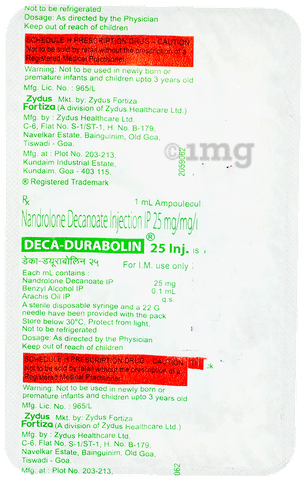 Not to be refrigerated
Dosage: As directed by the Physician
Keep out of reach of children
SCHEDULE H PRESCRIPTION DRUG - CAUTION
Not to be sold by retail without the prescription of a
Registered Medical Practitioner.
Warning: Not to be used in newly born or
premature infants and children upto 3 years old
Mfg. Lic. No. : 965/L
Zydus Mkt. by: Zydus Fortiza
Fortiza (A division of Zydus Healthcare Ltd.)
Mfg. by : Zydus Healthcare Ltd.
C-6, Flat No. S-1/ST-1, H. No. B-179,
Navelkar Estate, Bainguinim, Old Goa,
Tiswadi - Goa.
Mfg. at : Plot No. 203-213,
Kundaim Industrial Estate,
Kundaim, Goa - 403 115.
® Registered Trademark
1mg
Rx
1 mL Ampoule
Nandrolone Decanoate Injection IP 25 mg/ml
DECA-DURABOLIN® 25 Inj.
डेका-ड्यूराबोलिन २५
For I.M. use only
Each mL contains :
Nandrolone Decanoate IP 25 mg
Benzyl Alcohol IP 0.1 mL
Arachis Oil IP q.s.
A sterile disposable syringe and a 22 G
needle have been provided with the pack
Store below 30°C. Protect from light.
Not to be refrigerated
Dosage: As directed by the Physician
Keep out of reach of children
SCHEDULE H PRESCRIPTION DRUG - CAUTION
Not to be sold by retail without the prescription of a
Registered Medical Practitioner.
Warning: Not to be used in newly born or
premature infants and children upto 3 years old
Mfg. Lic. No. : 965/L
Zydus Mkt. by: Zydus Fortiza
Fortiza (A division of Zydus Healthcare Ltd.)
Mfg. by : Zydus Healthcare Ltd.
C-6, Flat No. S-1/ST-1, H. No. B-179,
Navelkar Estate, Bainguinim, Old Goa,
Tiswadi - Goa.
Mfg. at : Plot No. 203-213,